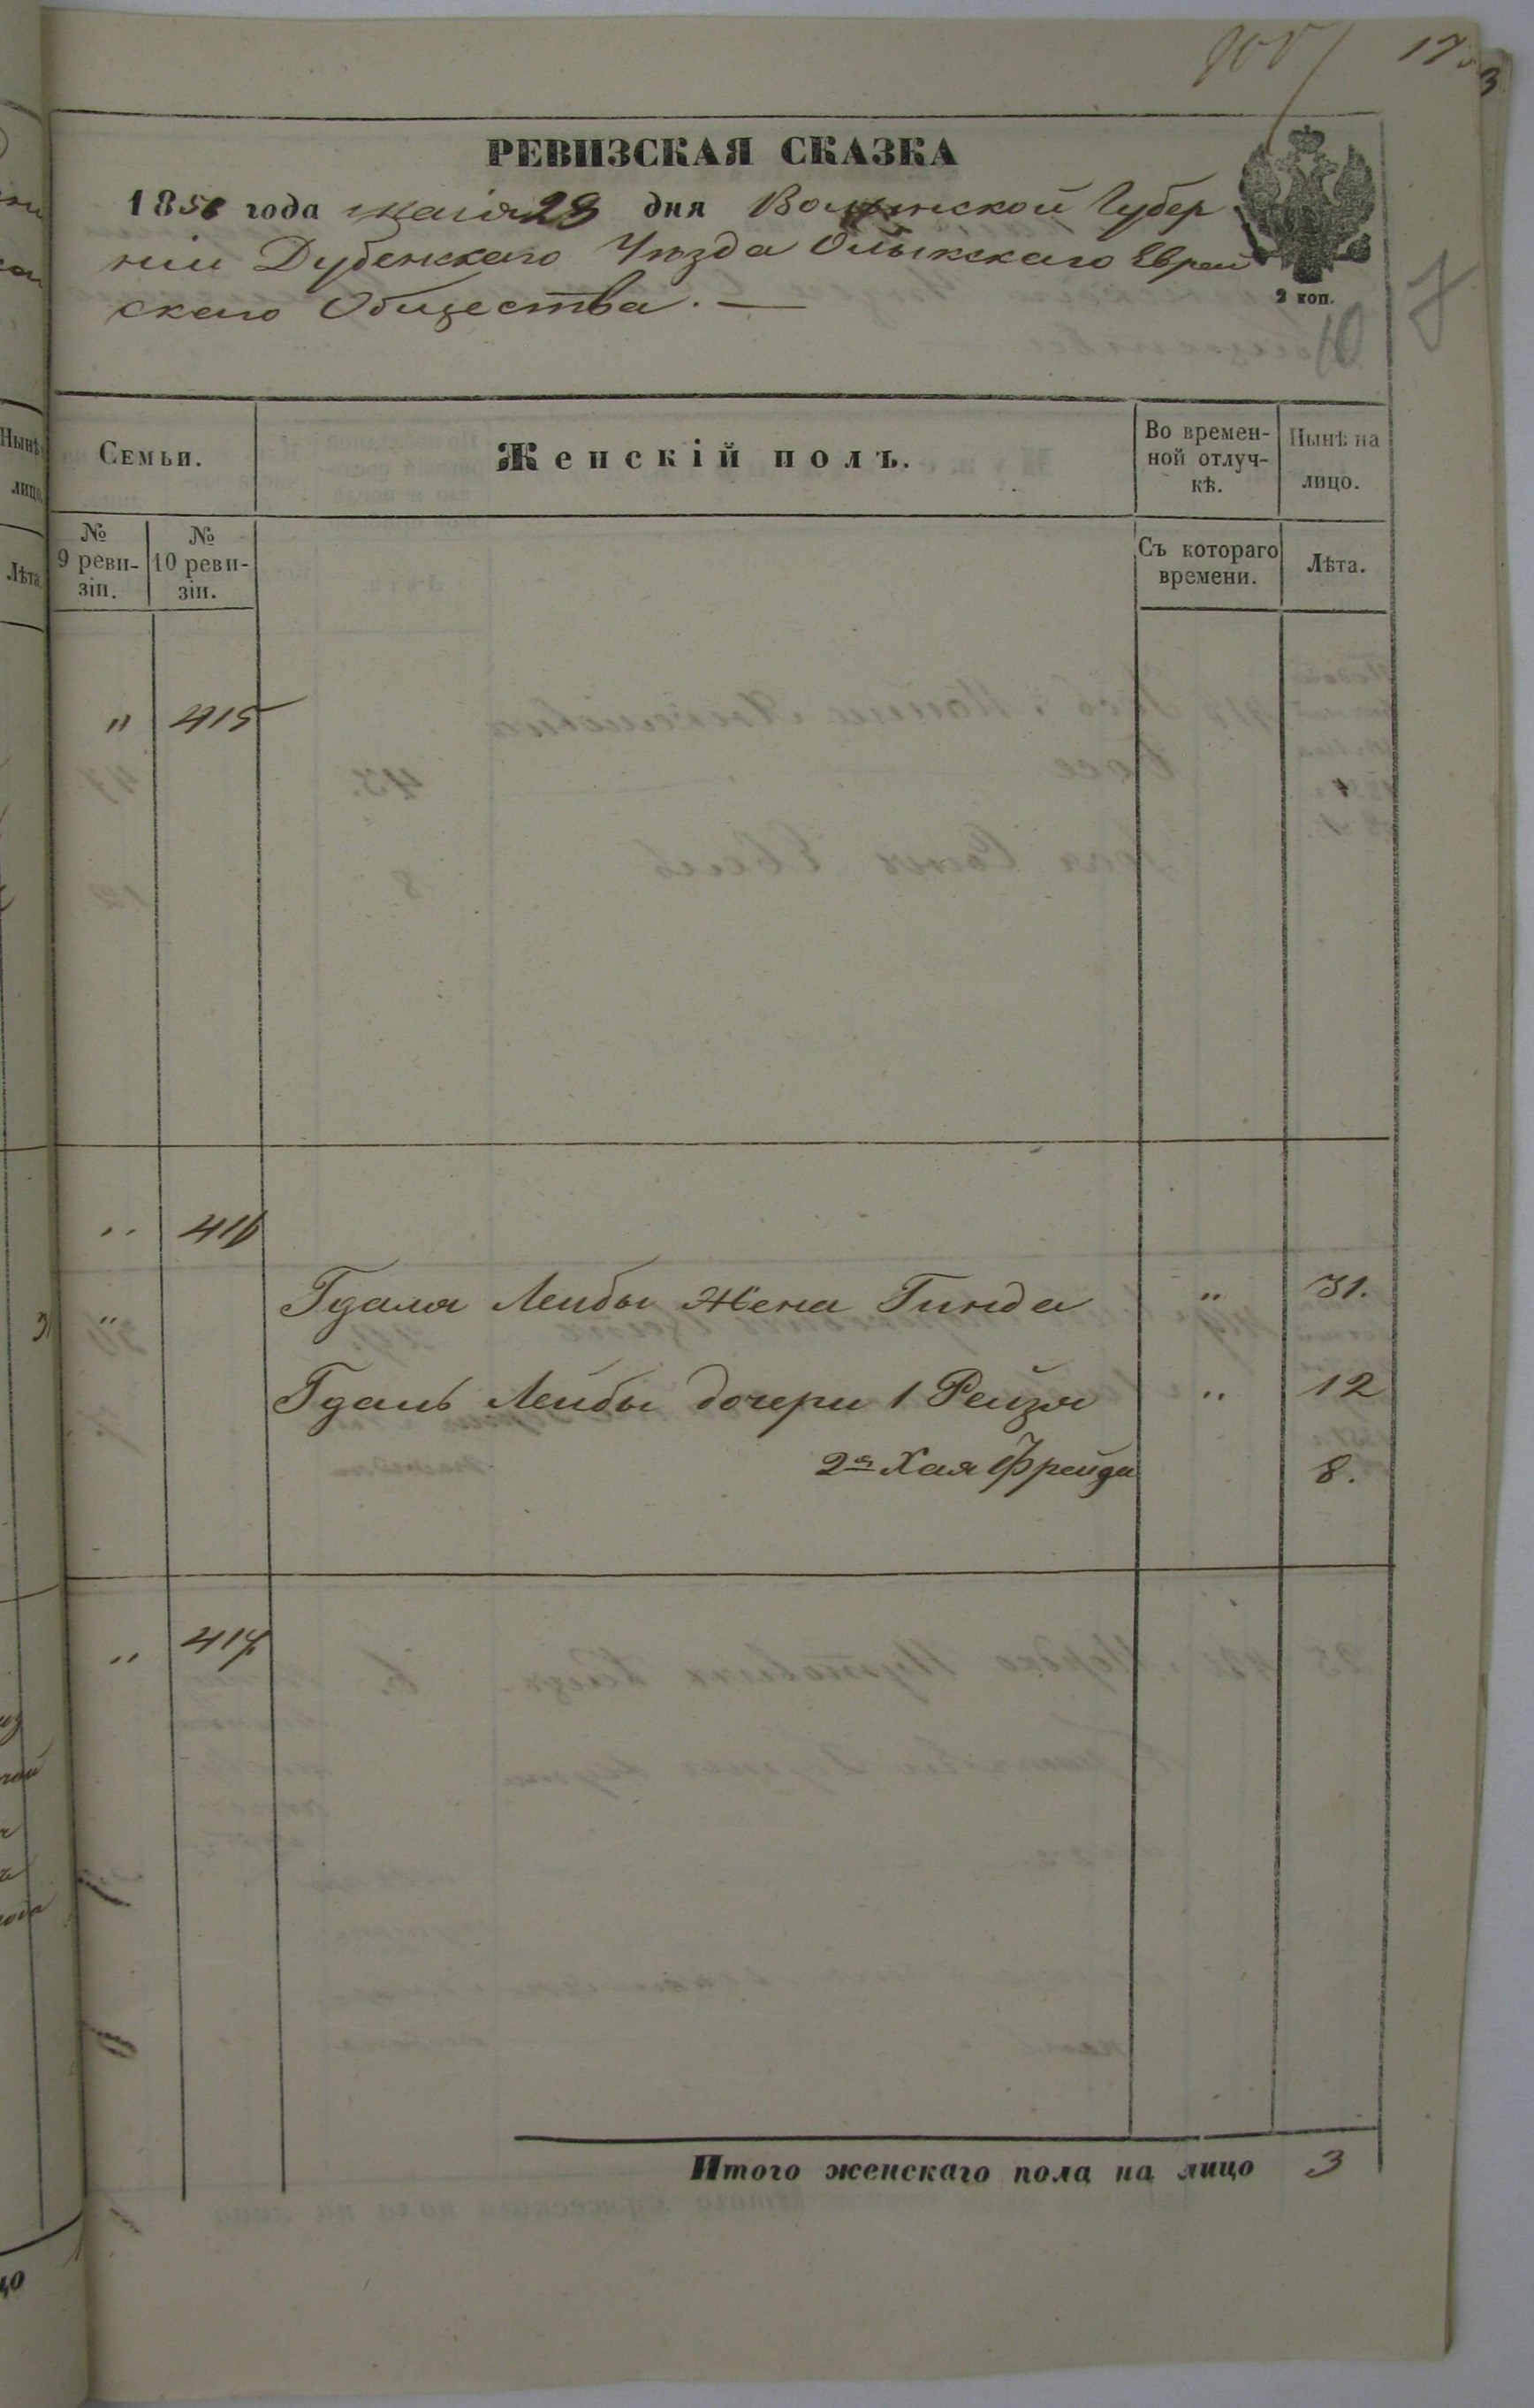 17
РЕВИЗСКАЯ СКАЗКА
1858 года маія 28 дня Волынской Губер
ніи Дубенскаго Уѣзда Олыкскаго Еврей
скаго Общества. —
2 коп.
10
Семьи.
Женскій полъ.
Во времен-
ной отлуч-
кѣ.
Нынѣ на
лицо.
№
9 реви-
зіи.
№
10 реви-
зіи.
Съ котораго
времени.
Лѣта.
" 415
" 416
Гдаля Лейбы Жена Гинда " 31.
Гдаль Лейбы дочери 1 Рейзя " 12
2я Хая Фрейда 8.
" 417
Итого женскаго пола на лицо 3